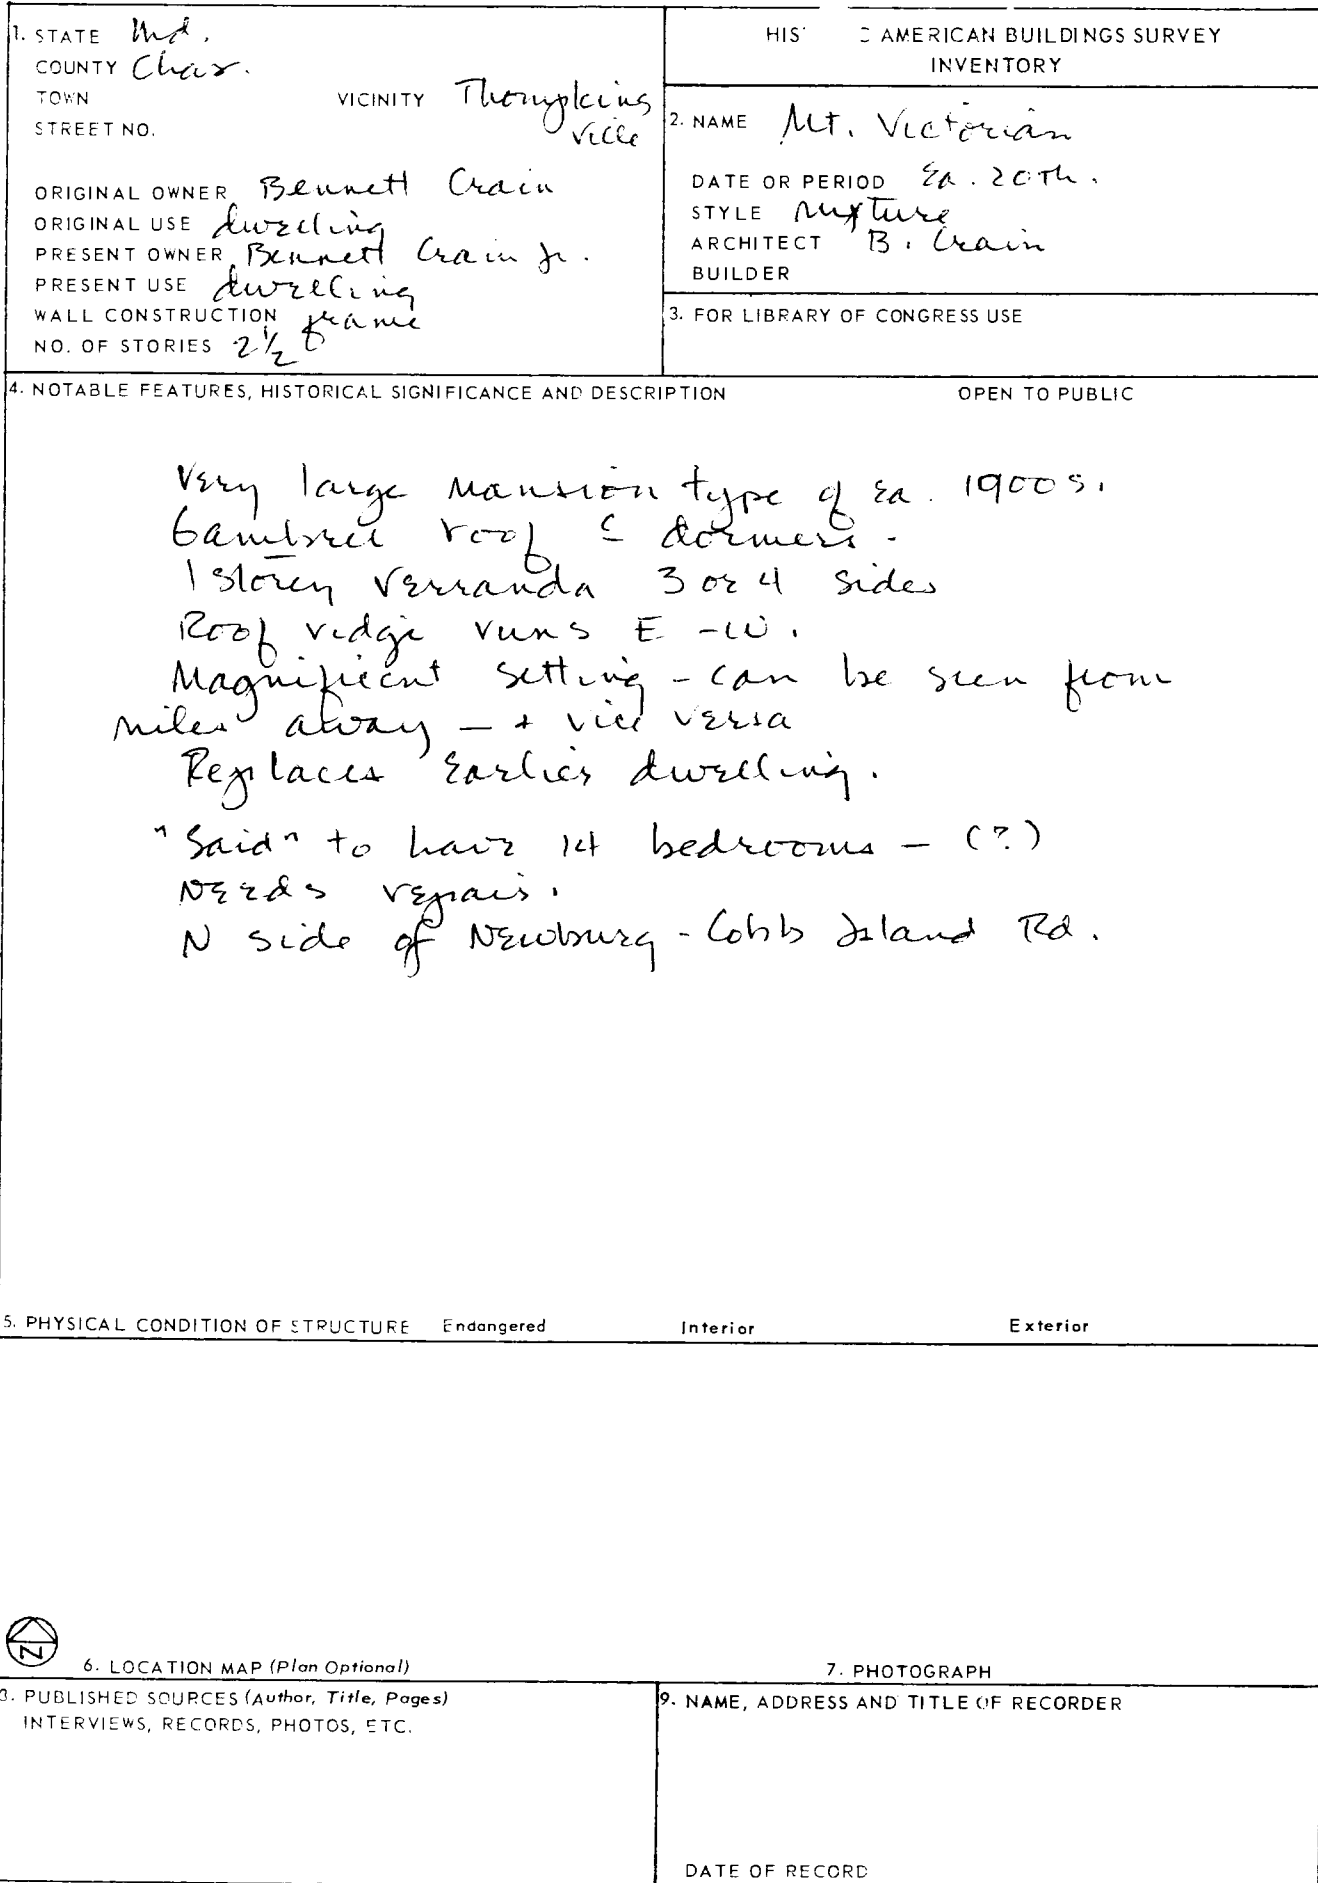 1. STATE Md.
COUNTY Chas.
TOWN VICINITY Thompkins
ville
STREET NO.
ORIGINAL OWNER Bennett Crain
ORIGINAL USE dwelling
PRESENT OWNER Bennett Crain Jr.
PRESENT USE dwelling
WALL CONSTRUCTION frame
NO. OF STORIES 2 1/2
HIS C AMERICAN BUILDINGS SURVEY
INVENTORY
2. NAME Mt. Victorian
DATE OR PERIOD Ea. 20th.
STYLE Mixture
ARCHITECT B. Crain
BUILDER
3. FOR LIBRARY OF CONGRESS USE
4. NOTABLE FEATURES, HISTORICAL SIGNIFICANCE AND DESCRIPTION OPEN TO PUBLIC
Very large Mansion type of Ea. 1900s.
Gambrel roof c dormers.
1 storey verranda 3 or 4 sides
Roof ridge runs E-W.
Magnificent setting - can be seen from
miles away - + vice versa
Replaces earlier dwelling.
"Said" to have 14 bedrooms - (?)
Needs repair.
N side of Newburg - Cobb Island Rd.
5. PHYSICAL CONDITION OF STRUCTURE Endangered Interior Exterior
N
6. LOCATION MAP (Plan Optional)
7. PHOTOGRAPH
8. PUBLISHED SOURCES (Author, Title, Pages)
INTERVIEWS, RECORDS, PHOTOS, ETC.
9. NAME, ADDRESS AND TITLE OF RECORDER
DATE OF RECORD